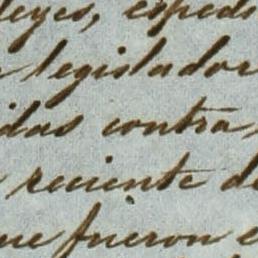 leyes, espedi
legislador
idas contra
reciente de
ue fueron e